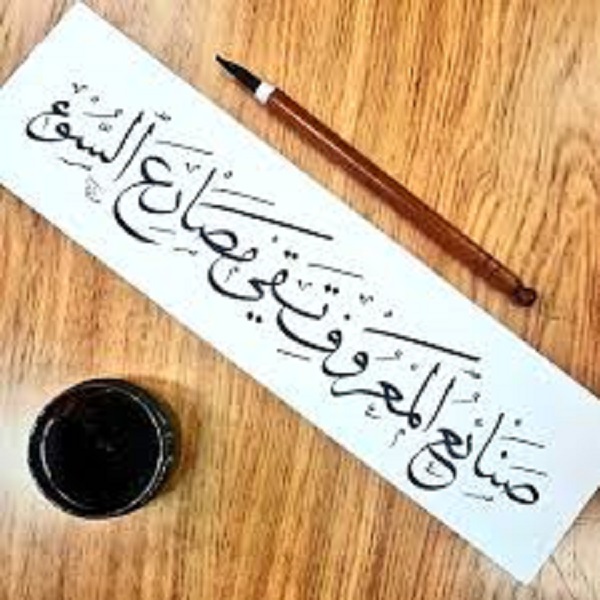 صَنَائِعُ الْمَعْرُوفِ تَقِي مَصَارِعَ السُّوْءِ